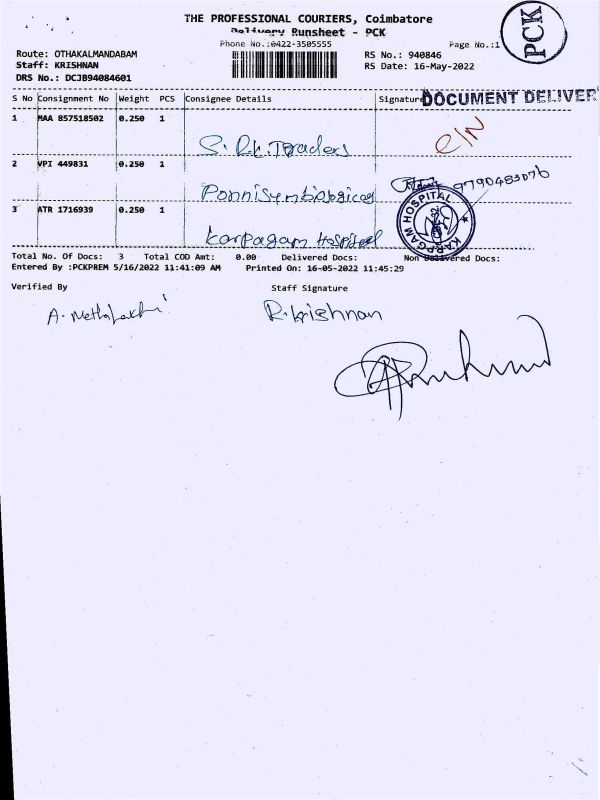 THE PROFESSIONAL COURIERS, Coimbatore
Delivery Runsheet - PCK
Phone No.:0422-3505555
Page No.:1
PCK
Route: OTHAKALMANDABAM
Staff: KRISHNAN
DRS No.: DCJB94084601
RS No.: 940846
RS Date: 16-May-2022
S No Consignment No Weight PCS Consignee Details Signature
DOCUMENT DELIVER
1 MAA 857518502 0.250 1
S. R.K. Traders
2 VPI 449831 0.250 1
9790483076
3 ATR 1716939 0.250 1 Karpagam Hospital
KARPGAM HOSPITAL
Total No. Of Docs: 3 Total COD Amt: 0.00 Delivered Docs: Non Delivered Docs:
Entered By :PCKPREM 5/16/2022 11:41:09 AM Printed On: 16-05-2022 11:45:29
Verified By Staff Signature
R. Krishnan